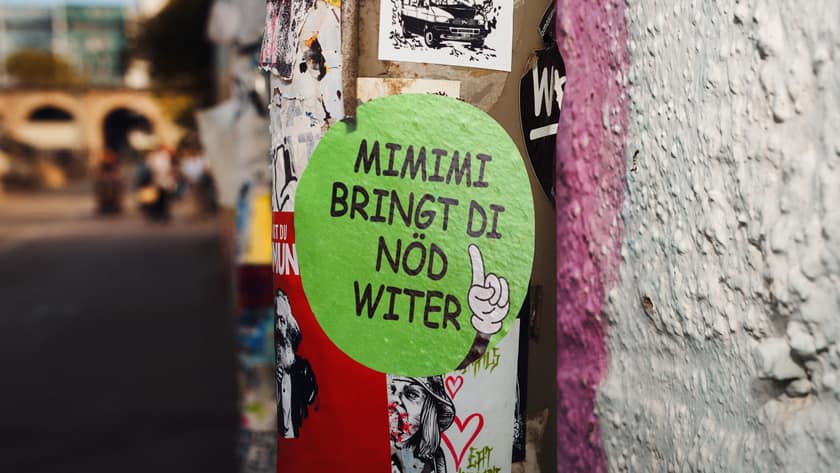 MIMIMI
BRINGT DI
NÖD
WITER
W
T DU
MUN
EAT